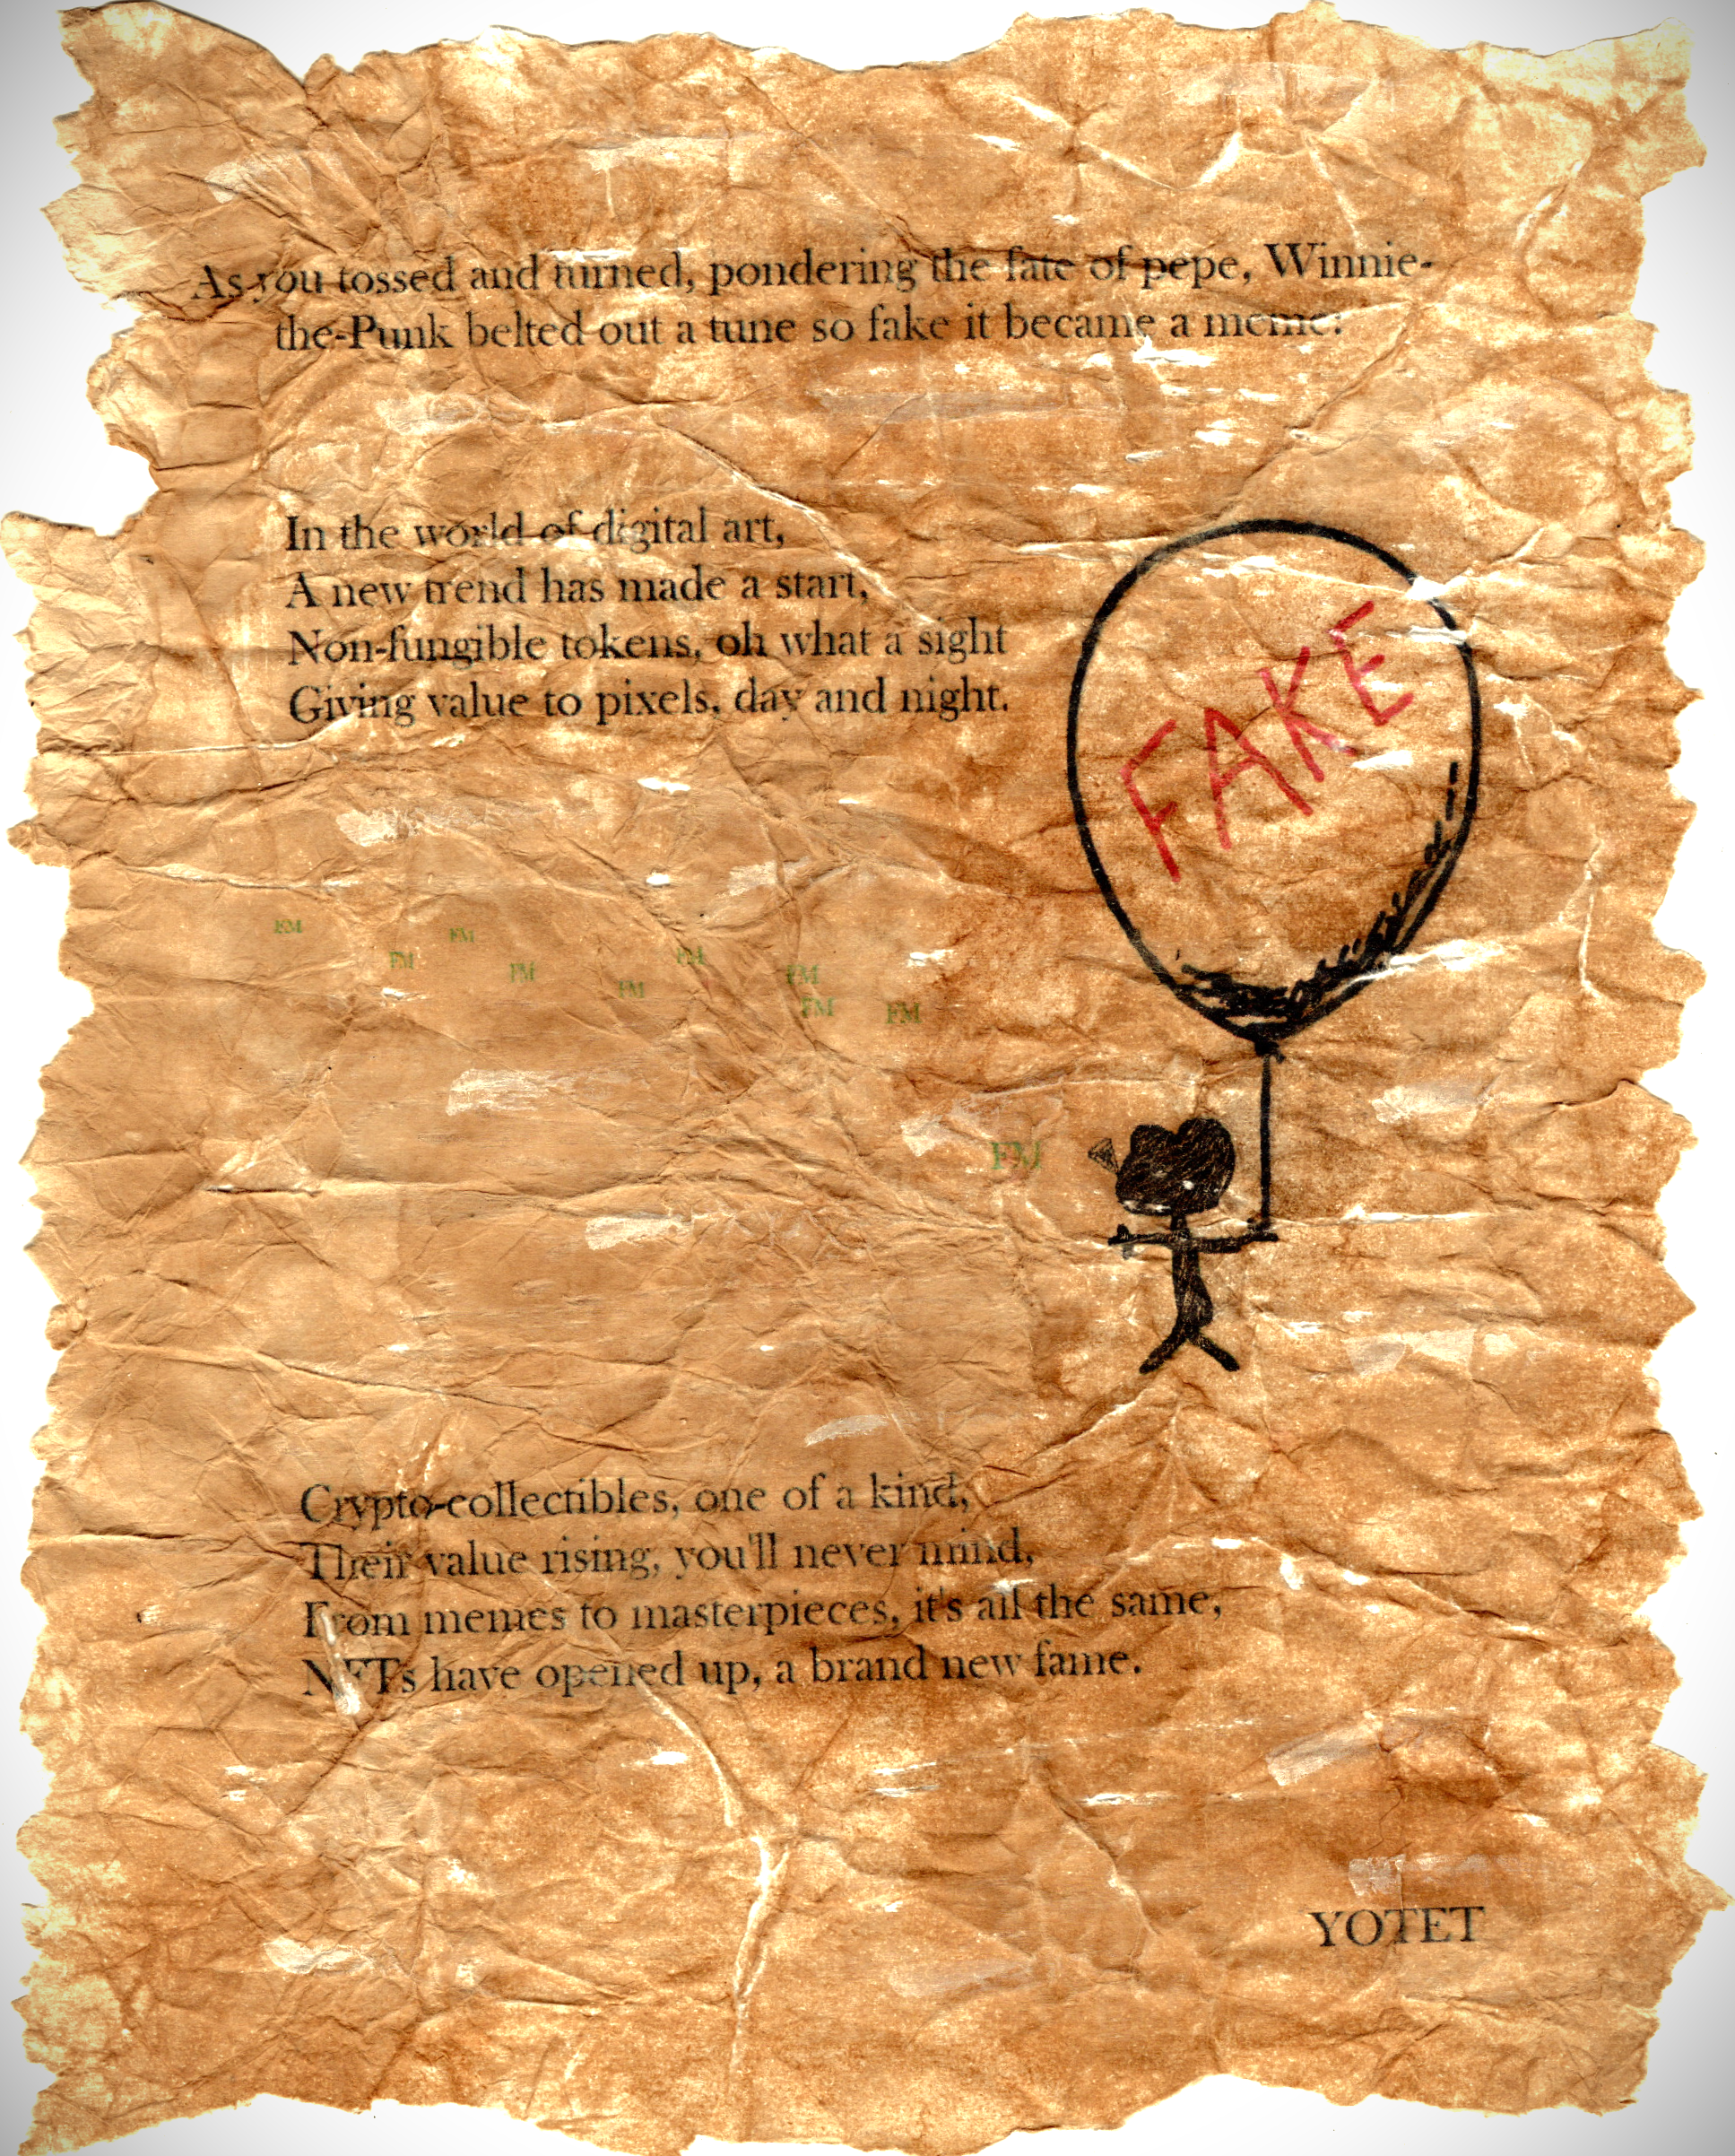 As you tossed and turned, pondering the fate of pepe, Winnie-
the-Punk belted out a tune so fake it became a meme:
In the world of digital art,
A new trend has made a start,
Non-fungible tokens, oh what a sight
Giving value to pixels, day and night.
FAKE
FM
FM
FM
FM
FM
FM
FM
FM
FM
FM
Crypto-collectibles, one of a kind,
Their value rising, you'll never mind,
From memes to masterpieces, it's all the same,
NFTs have opened up, a brand new fame.
YOTET